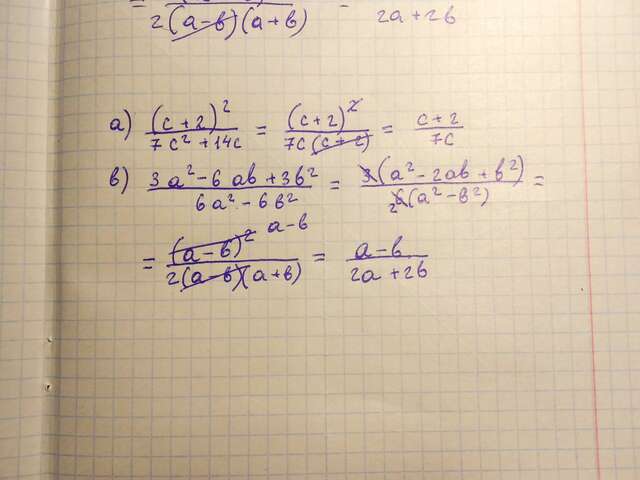 2(a-b)(a+b) 2a+2b
a) (c+2)² / 7c²+14c = (c+2)² / 7c(c+2) = c+2 / 7c
в) 3a²-6ab+3b² / 6a²-6b² = 3(a²-2ab+b²) / 2 6(a²-b²) =
= (a-b)² a-b / 2(a-b)(a+b) = a-b / 2a+2b